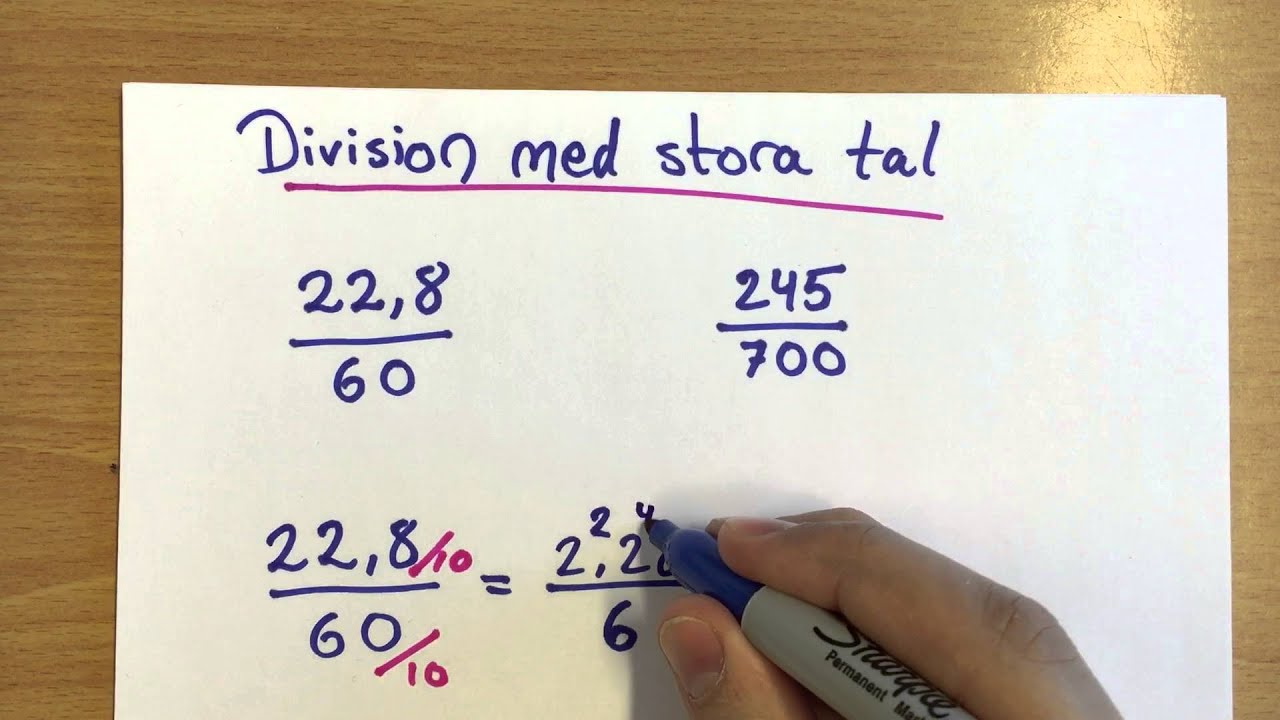 Division med stora tal
22,8
60
245
700
22,8/10
60/10
=
2 4
2,2
6
Sharpie
Permanent